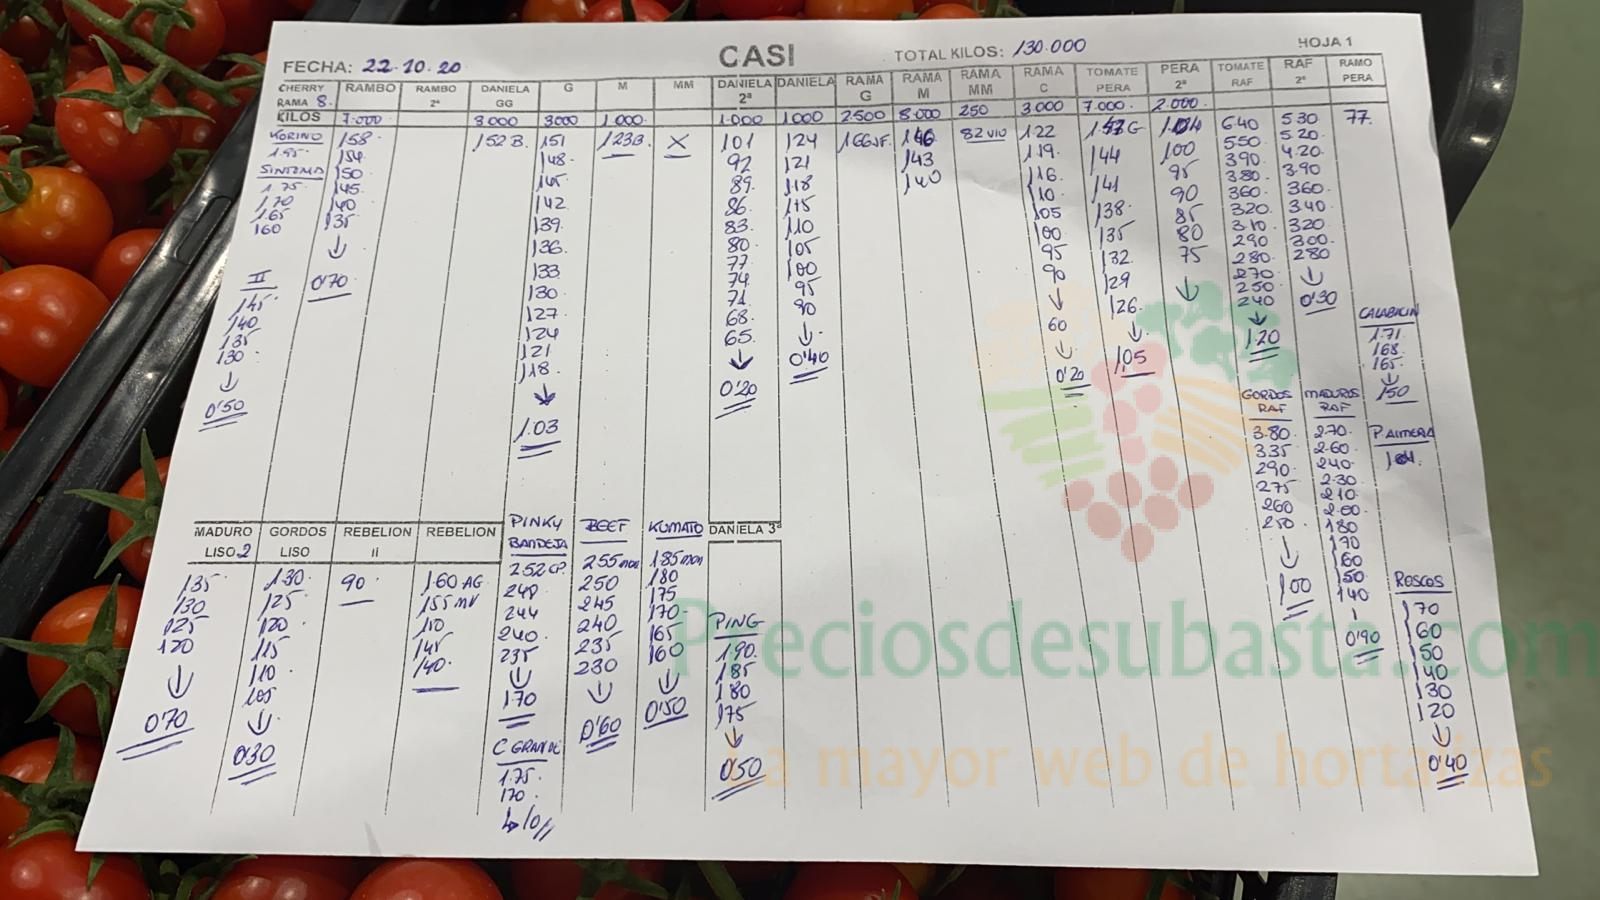 CASI
FECHA: 22.10.20
TOTAL KILOS: 130.000
HOJA 1
CHERRY RAMA 8. RAMBO RAMBO 2ª DANIELA GG G M MM DANIELA 2ª DANIELA RAMA G RAMA M RAMA MM RAMA C TOMATE PERA PERA 2ª TOMATE RAF RAF 2ª RAMO PERA
KILOS 7.000 3000 1.000 1.000 1000 2500 8.000 250 3.000 7.000 2.000
KORINO
1.95
SINTOMA
1.75
1.70
1.65
160
II
145
140
135
130
↓
0'50
158
154
150
145
140
135
↓
0'70
152 B.
151
148
145
142
139
136
133
130
127
124
121
118
↓
1.03
123B.
X
101
92
89
86
83
80
77
74
71
68
65
↓
0'20
124
121
118
115
110
105
100
95
90
↓
0'40
166 JF.
146
143
140
82 VIO
122
119
116
110
105
100
95
90
↓
60
↓
0'20
157 G
144
141
138
135
132
129
126
↓
105
104
100
95
90
85
80
75
↓
640
550
390
380
360
320
310
290
280
270
250
240
↓
1.20
5.30
5.20
4.20
3.90
360
340
320
300
280
↓
0'30
77.
CALABICIN
1.71
168
165
↓
150
P. ALMERIA
104.
GORDOS RAF
3.80
335
290
275
260
250
↓
100
MADUROS RAF
2.70
2.60
240
2.30
210
200
180
170
160
150
140
0'90
ROSCOS
170
160
150
140
130
120
↓
0'40
MADURO LISO 2
135
130
125
120
↓
0'70
GORDOS LISO
130
125
120
115
110
105
↓
0'30
REBELION II
90
REBELION
160 AG
155 MV
150
145
140
PINKY BANDEJA
252 CP.
248
244
240
235
↓
1.70
C GRANDE
1.75
170
BEEF
255
250
245
240
235
230
↓
0'60
KUMATO
1.85
180
175
170
165
160
↓
0'50
DANIELA 3ª
PING
1.90
185
180
175
↓
0'50
Preciosdesubasta.com
La mayor web de hortalizas